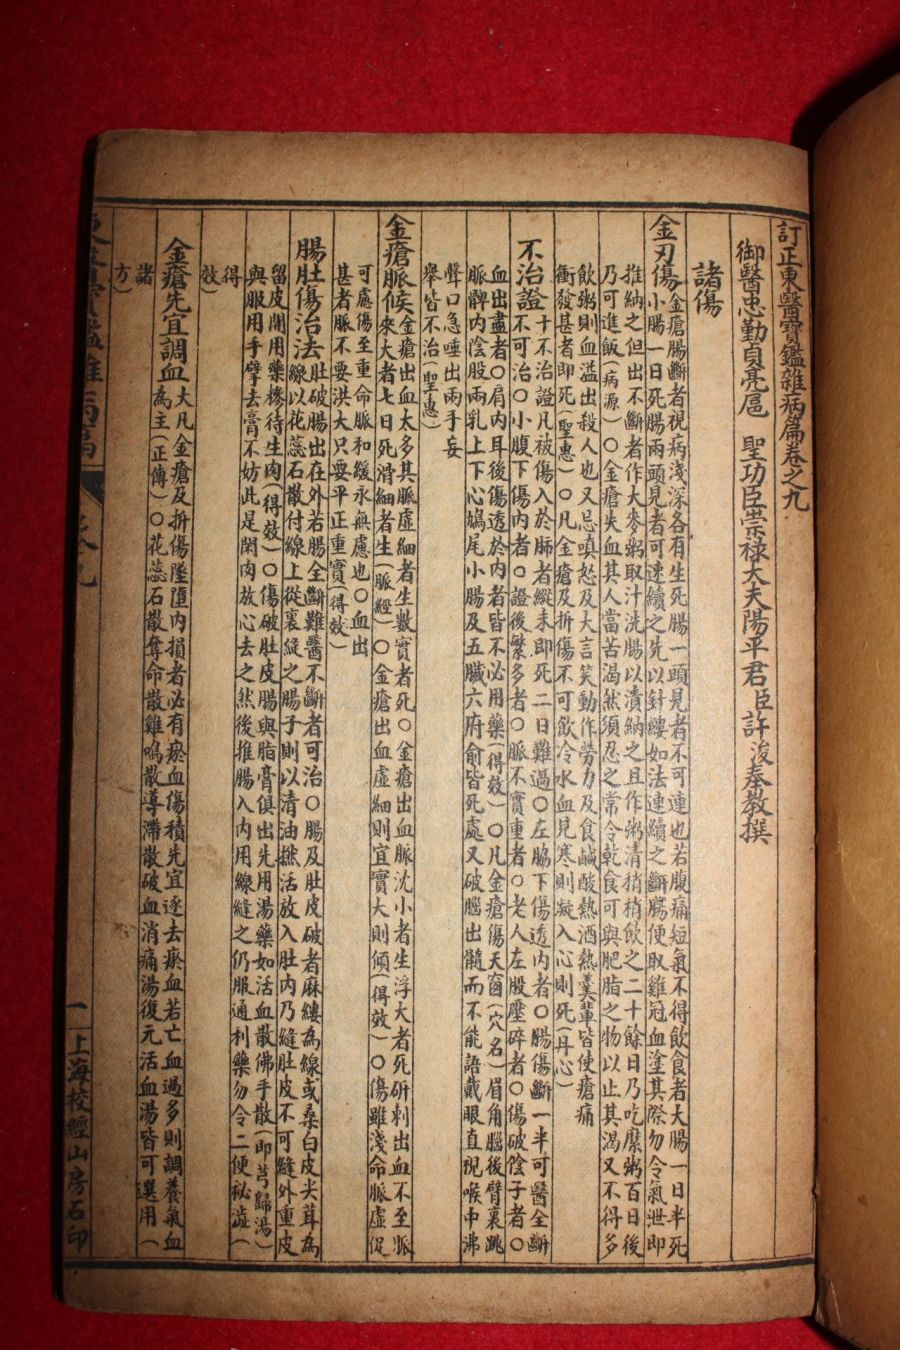 訂正東醫寶鑑雜病篇卷之九
御醫忠勤貞亮扈 聖功臣崇祿大夫陽平君臣許浚奉教撰
諸傷
金刃傷
金瘡腸斷者視病淺深各有生死腸一頭見者不可連也若腹痛短氣不得飲食者大腸一日半死
小腸一日死腸兩頭見者可速續之先以針縷如法連續之斷腸便取雞冠血塗其際勿令氣泄即
推納之但出不斷者作大麥粥取汁洗腸以漬納之且作粥清稍稍飲之二十餘日乃吃糜粥百日後
乃可進飯(病源)○金瘡失血其人當苦渴然須忍之常令乾食可與肥脂之物以止其渴又不得多
飲粥則血溢出殺人也又忌嗔怒及大言笑動作勞力及食鹹酸熱酒熱羹軰皆使瘡痛
衝發甚者即死(聖惠)○凡金瘡及折傷不可飲冷水血見寒則凝入心則死(丹心)
不治證
十不治證凡被傷入於肺者縱未即死二日難過○左脇下傷透內者○腸傷斷一半可醫全斷
不可治○小腹下傷內者○證後繁多者○脈不實重者○老人左股壓碎者○傷破陰子者○
血出盡者○肩內耳後傷透於內者皆不必用藥(得效)○凡金瘡傷天窗(穴名)眉角腦後臂裏跳
脈髀內陰股兩乳上下心鳩尾小腸及五臟六府俞皆死處又破腦出髓而不能語戴眼直視喉中沸
聲口急唾出兩手妄
舉皆不治(聖惠)
金瘡脈候
金瘡出血太多其脈虛細者生數實者死○金瘡出血脈沈小者生浮大者死○斫刺出血不至脈
來大者七日死滑細者生(脈經)○金瘡出血虛細則宜實大則傾(得效)○傷雖淺命脈虛促
可慮傷至重命脈和緩永無慮也○血出
甚者脈不要洪大只要平正重實(得效)
腸肚傷治法
肚破腸出在外若腸全斷難醫不斷者可治○腸及肚皮破者麻縷為線或桑白皮尖茸為
線以花蕊石散付線上從裏縫之腸子則以清油撚活放入肚內乃縫肚皮不可縫外重皮
留皮開用藥摻待生肉(得效)○傷破肚皮腸與脂膏俱出先用湯藥如活血散佛手散(即芎歸湯)
與服用手擘去膏不妨此是閑肉放心去之然後推腸入內用線縫之仍服通利藥勿令二便秘澁(
得
效)
金瘡先宜調血
大凡金瘡及折傷墜墮內損者必有瘀血傷積先宜逐去瘀血若亡血過多則調養氣血
為主(正傳)○花蕊石散奪命散雞鳴散導滯散破血消痛湯復元活血湯皆可選用(
諸
方)
東醫寶鑑雜病篇 卷九 一 上海校經山房石印